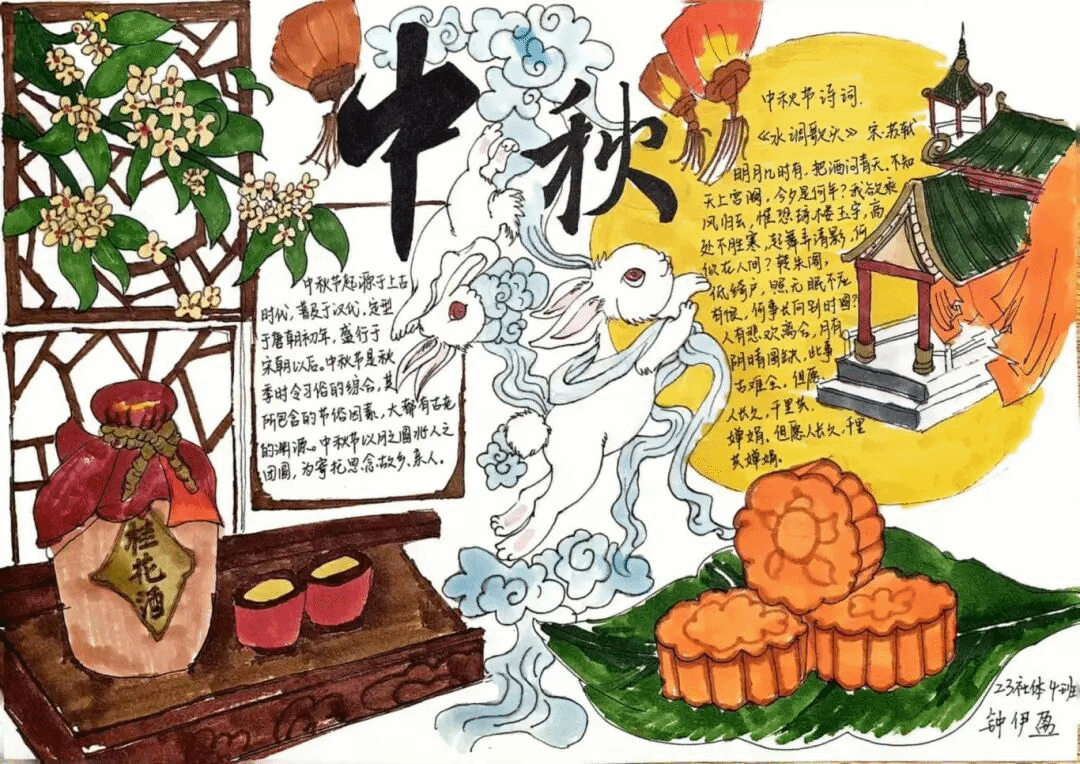 中秋
中秋节起源于上古
时代，普及于汉代，定型
于唐朝初年，盛行于
宋朝以后。中秋节是秋
季时令习俗的综合，其
所包含的节俗因素，大都有古老
的渊源。中秋节以月之圆兆人之
团圆，为寄托思念故乡、亲人。
中秋节诗词.
《水调歌头》 宋·苏轼
明月几时有，把酒问青天。不知
天上宫阙，今夕是何年？我欲乘
风归去，惟恐琼楼玉宇，高
处不胜寒，起舞弄清影，何
似在人间？转朱阁，
低绮户，照无眠不应
有恨，何事长向别时圆？
人有悲欢离合，月有
阴晴圆缺，此事
古难全，但愿
人长久，千里共
婵娟。但愿人长久，千里
共婵娟。
桂花酒
23社体4班
钟伊